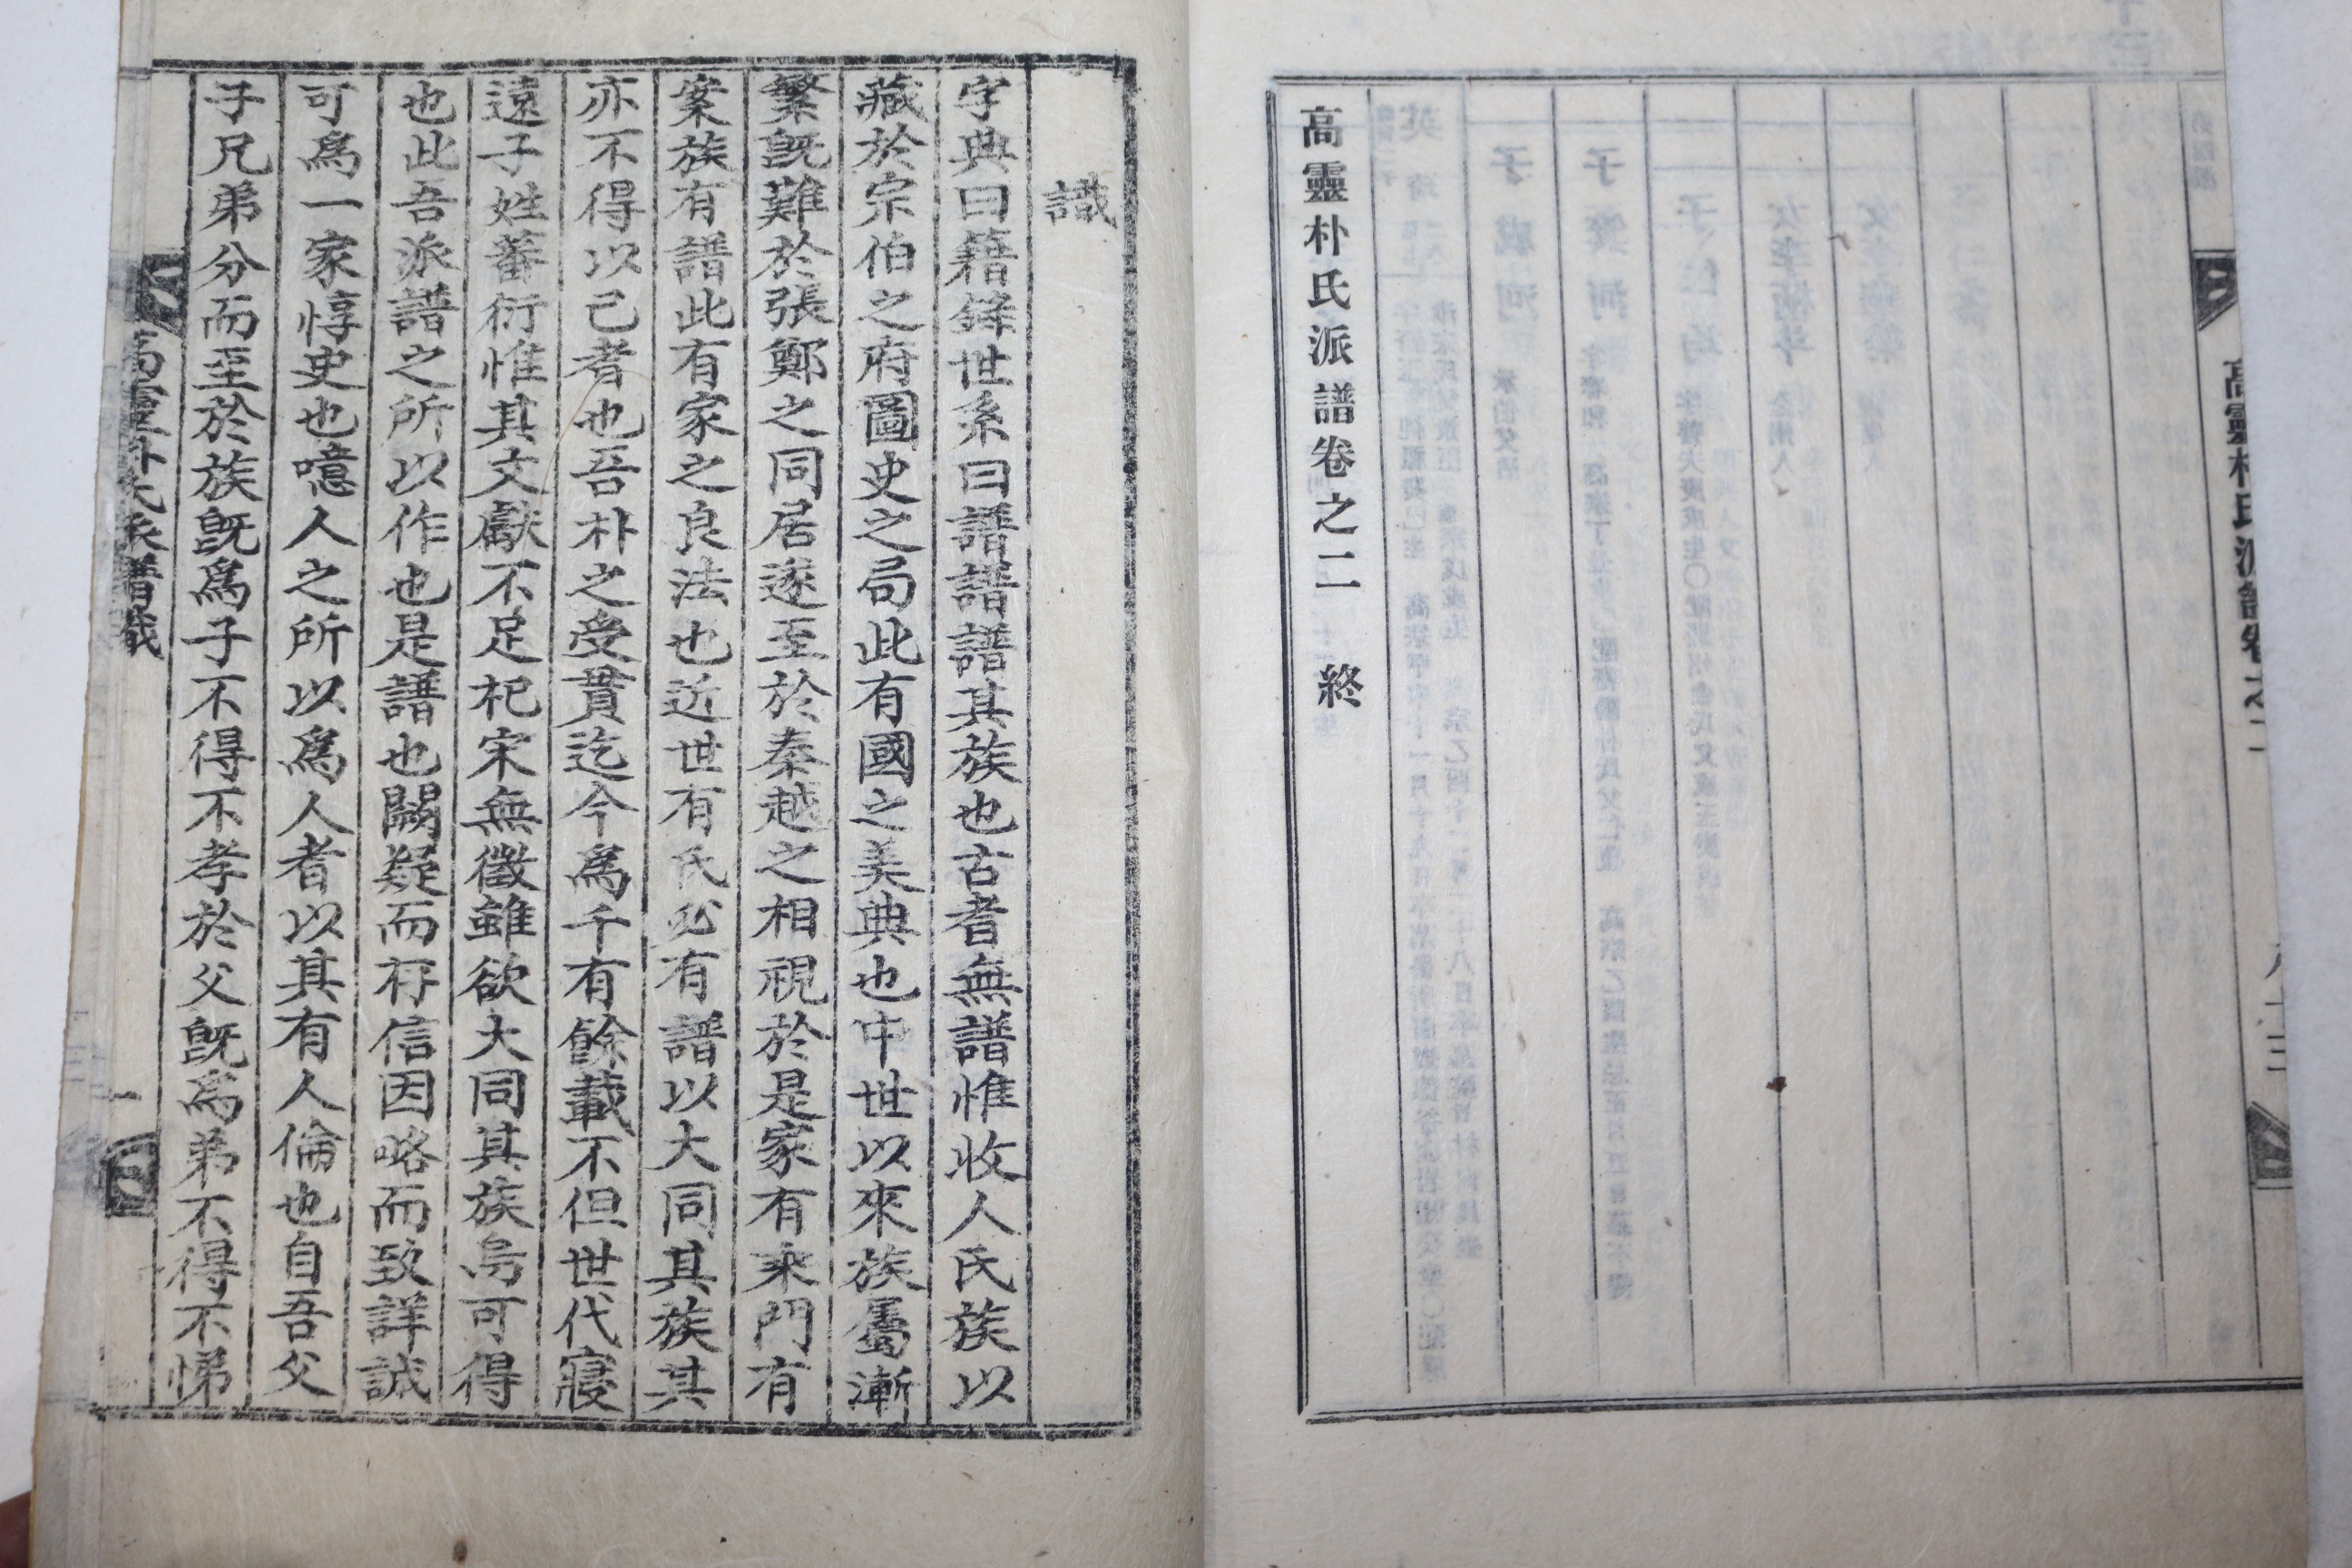 高靈朴氏派譜卷之二
高靈朴氏派譜卷之二　終
識
字典曰籍錄世系曰譜譜譜其族也古者無譜惟收人氏族以
藏於宗伯之府圖史之局此有國之美典也中世以來族屬漸
繁旣難於張鄭之同居遂至於秦越之相視於是家有乘門有
案族有譜此有家之良法也近世有氏必有譜以大同其族其
亦不得以已者也吾朴之受貫迄今爲千有餘載不但世代寢
遠子姓蕃衍惟其文獻不足杞宋無徵雖欲大同其族烏可得
也此吾派譜之所以作也是譜也闕疑而存信因略而致詳誠
可爲一家惇史也噫人之所以爲人者以其有人倫也自吾父
子兄弟分而至於族旣爲子不得不孝於父旣爲弟不得不悌
高靈朴氏派譜識　一